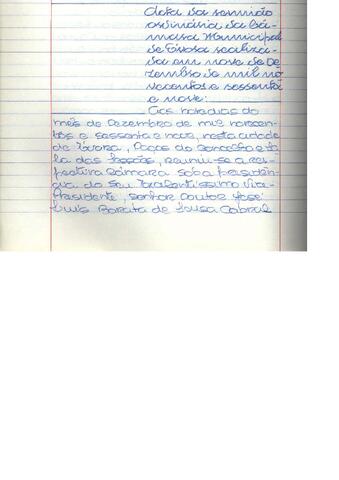 Acta da reunião
ordinária da Câ-
mara Municipal
de Évora realiza-
da em nove de De-
zembro de mil no-
vecentos e sessenta
e nove:
Aos nove dias do
mês de Dezembro de mil novecen-
tos e sessenta e nove, nesta cidade
de Évora, Paços do Concelho e Sa-
la das Sessões, reuniu-se a res-
pectiva Câmara sob a presidên-
cia do seu Excelentíssimo Vice-
Presidente, senhor Doutor José
Luís Barata de Sousa Cabral